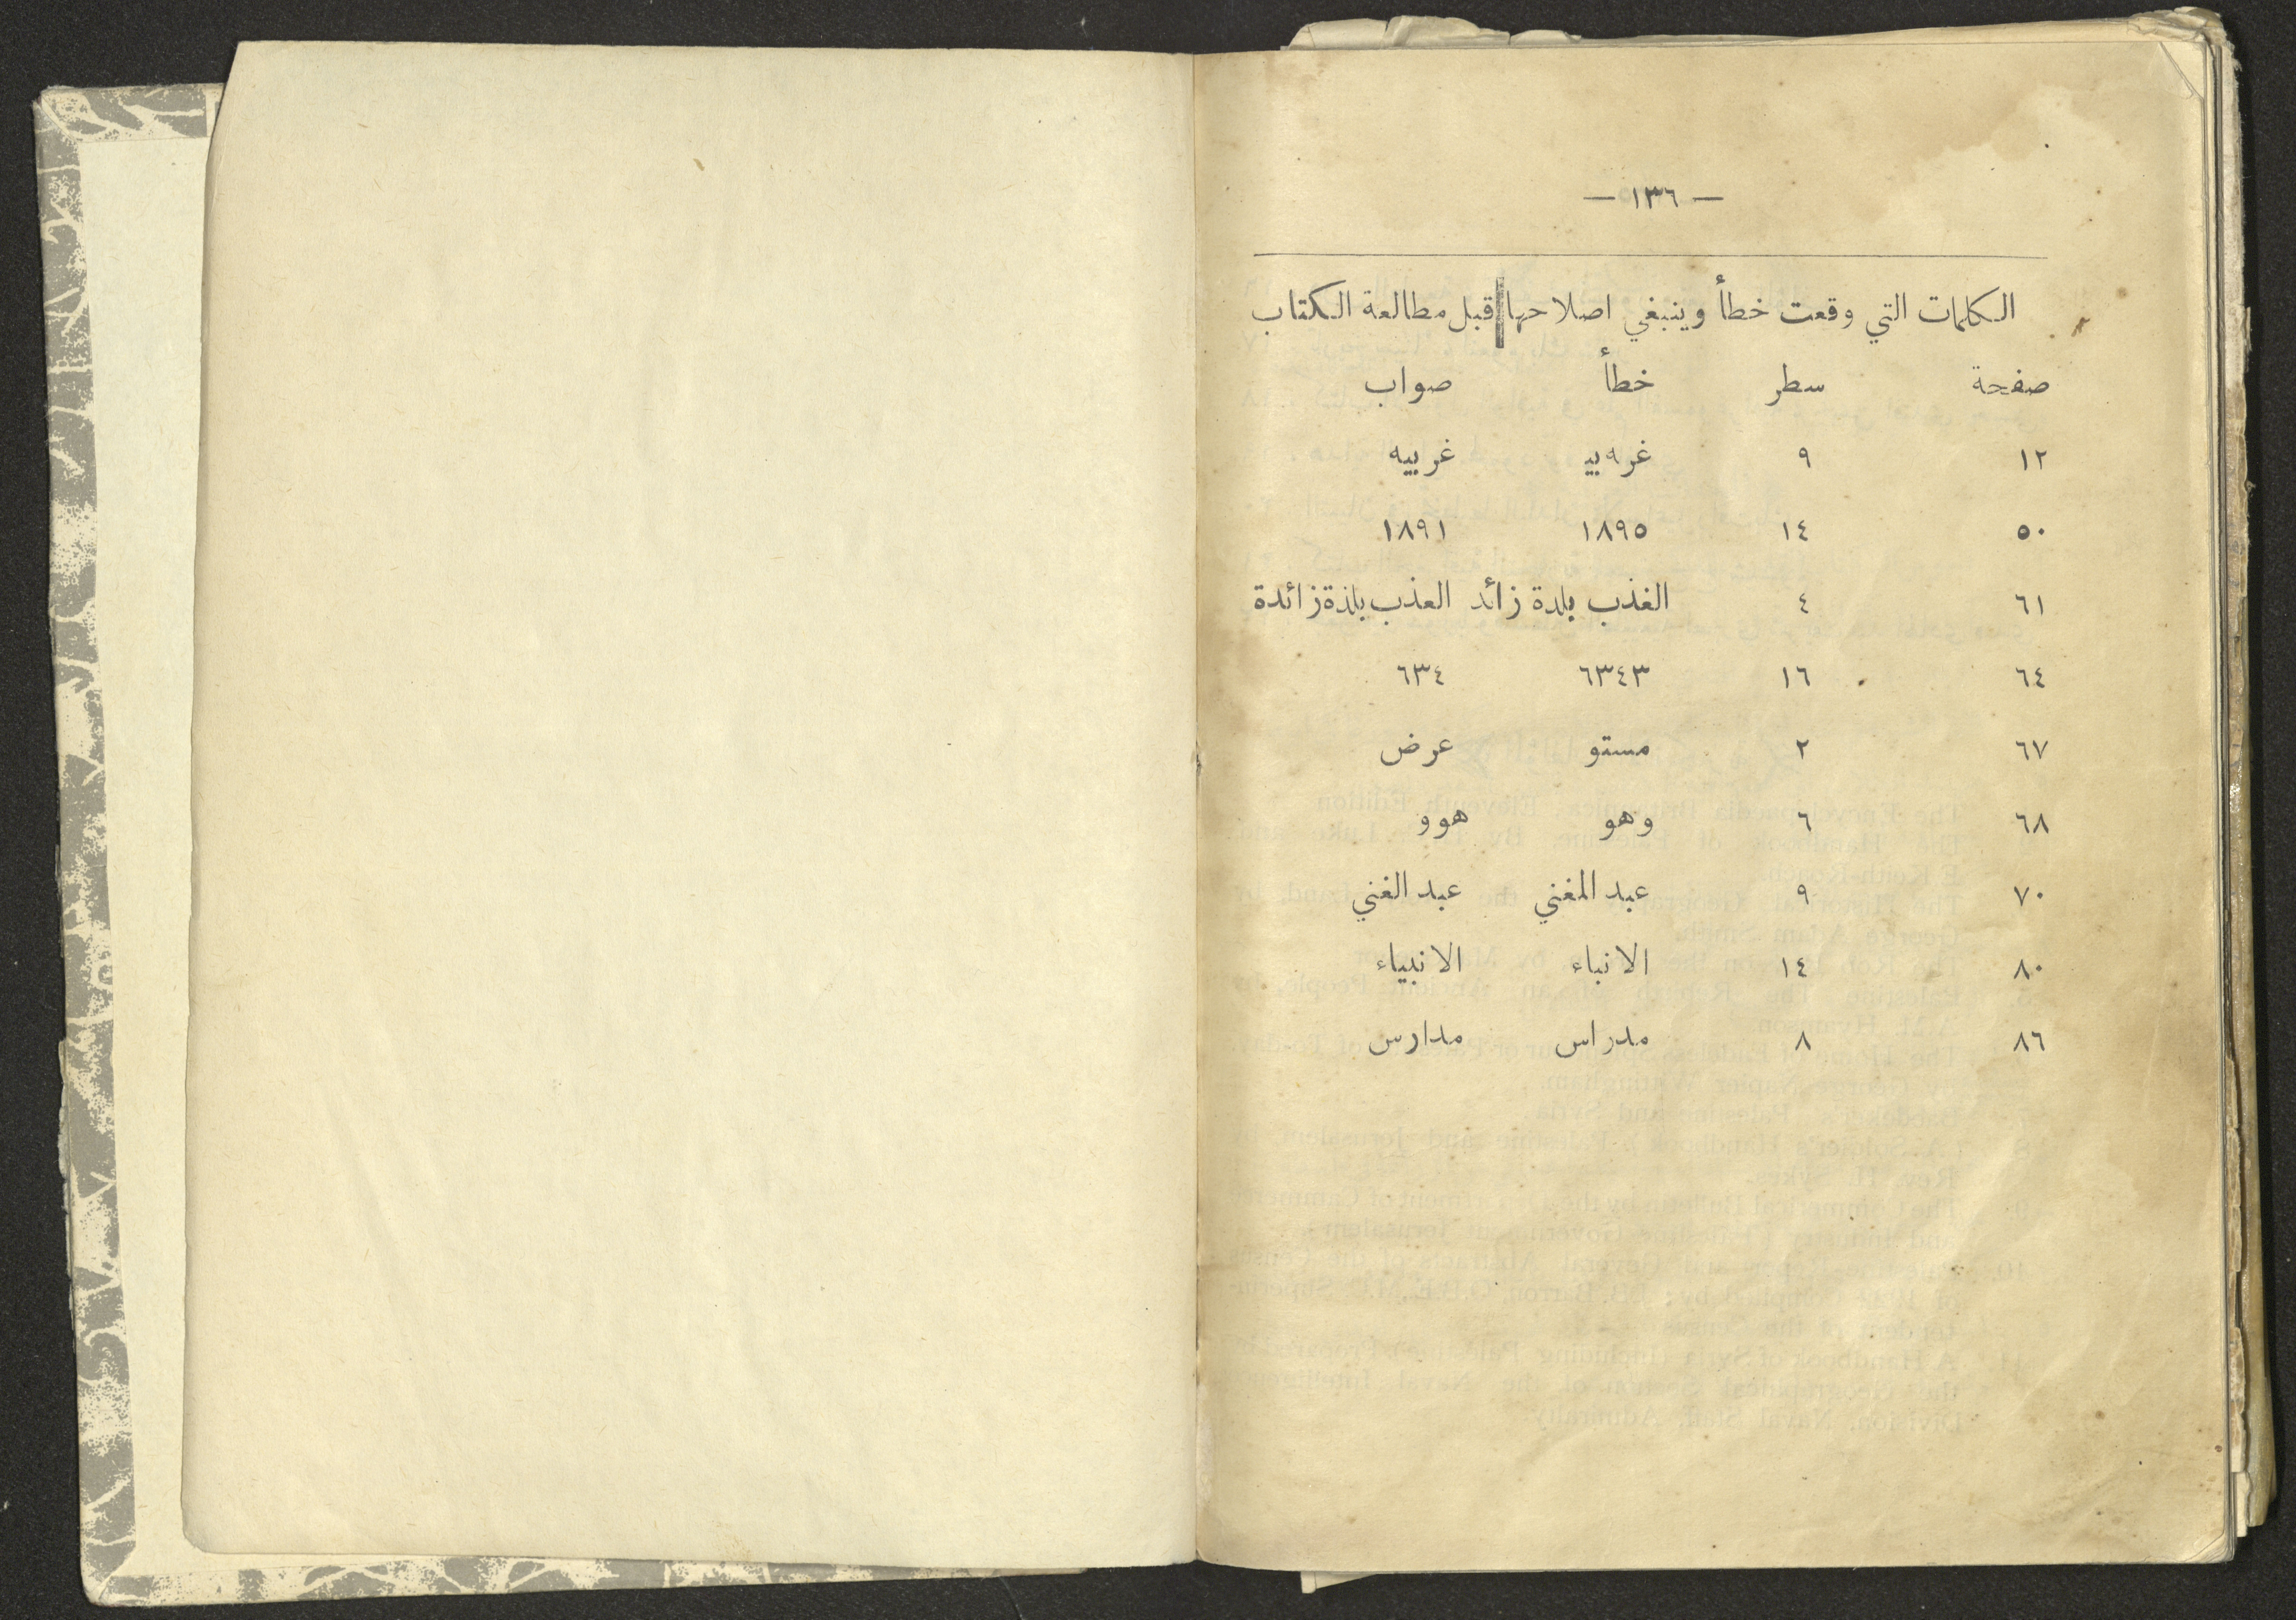 — ١٣٦ —
الكلمات التي وقعت خطأ وينبغي اصلاحها قبل مطالعة الكتاب
صفحة سطر خطأ صواب
١٢ ٩ غره بيـ غربيه
٥٠ ١٤ ١٨٩٥ ١٨٩١
٦١ ٤ الغذب بلدة زائد العذب بلذة زائدة
٦٤ ١٦ ٦٣٤٣ ٦٣٤
٦٧ ٢ مستو عرض
٦٨ ٦ وهو هوو
٧٠ ٩ عبد المغني عبد الغني
٨٠ ١٤ الانباء الانبياء
٨٦ ٨ مدراس مدارس